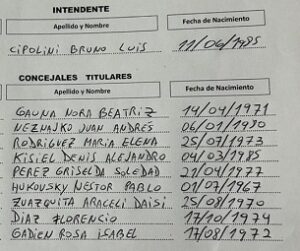 INTENDENTE
Apellido y Nombre Fecha de Nacimiento
CIPOLINI BRUNO LUIS 11/06/1985
CONCEJALES TITULARES
Apellido y Nombre Fecha de Nacimiento
GAUNA NORA BEATRIZ 14/04/1971
NEZNAJKO JUAN ANDRES 06/01/1990
RODRIGUEZ MARIA ELENA 25/07/1973
KISIEL DENIS ALEJANDRO 04/03/1985
PEREZ GRISELDA SOLEDAD 21/04/1977
HUKOVSKY NESTOR PABLO 01/07/1967
ZUAZQUITA ARACELI DAISI 25/08/1970
DIAZ FLORENCIO 17/10/1974
GADIEN ROSA ISABEL 17/08/1972